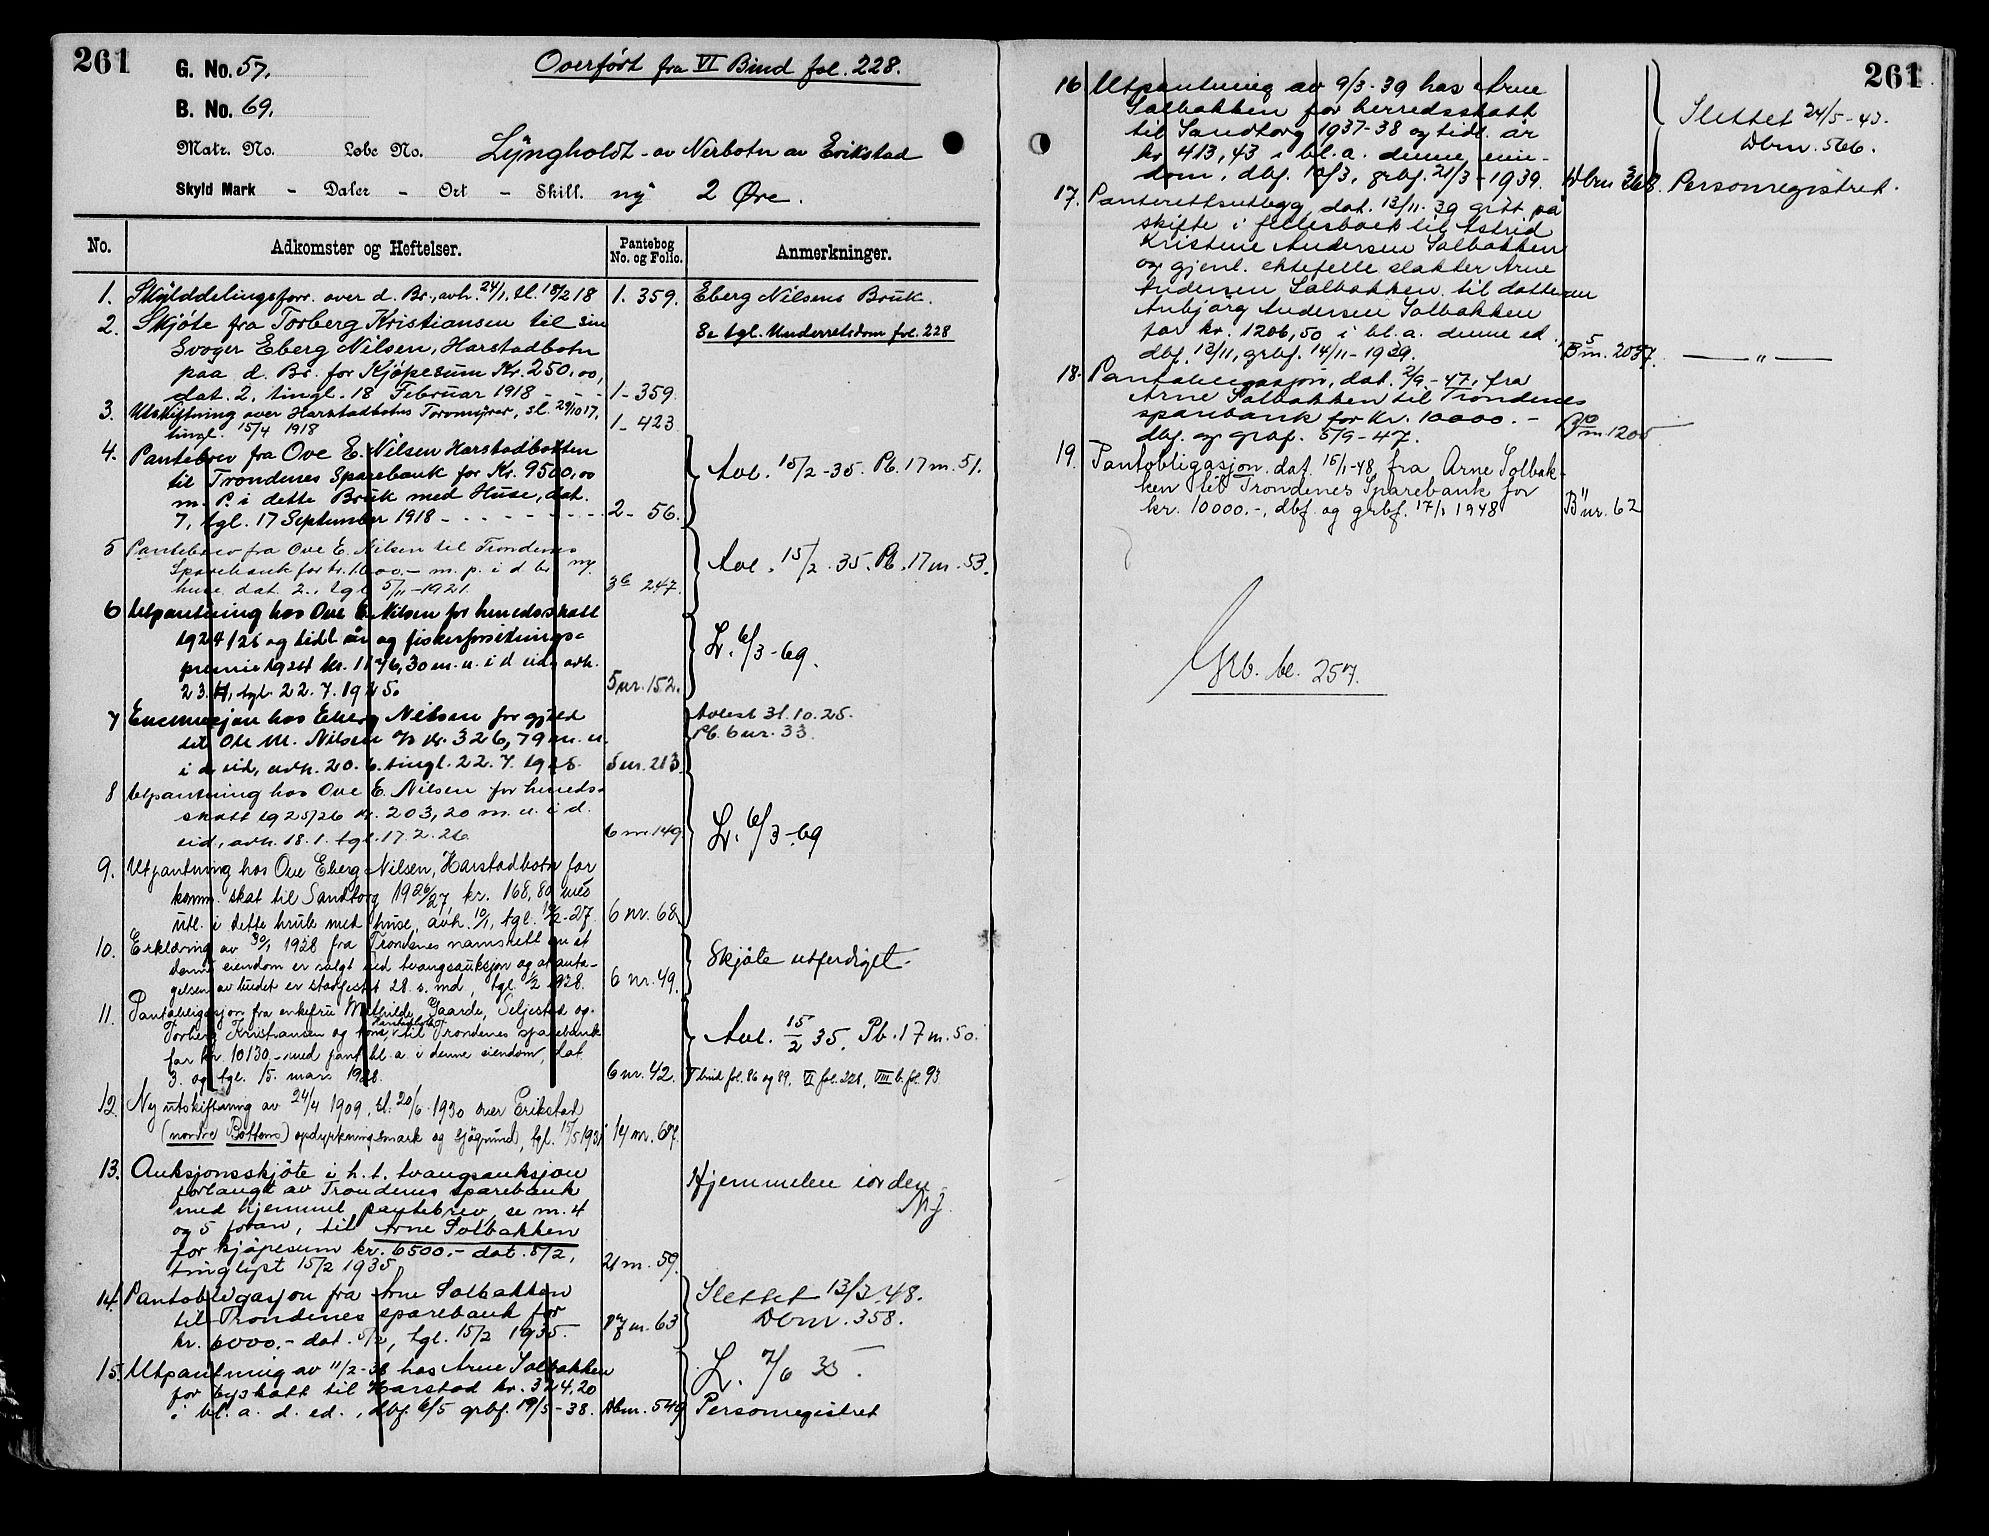 261
G. No. 57.
Overført fra VI Bind fol. 228.
B. No. 69.
Matr. No. Løbe No. Lyngholdt - av Nerbotn av Erikstad
Skyld Mark - Daler - Ort - Skill. ny 2 Øre.
No. Adkomster og Heftelser. Pantebog No. og Folio. Anmerkninger.
1. Skylddelingsforr. over d. Br., avh. 24/1, tl. 18/2 18 1. 359. Eberg Nilsens Bruk.
2. Skjøte fra Torberg Kristiansen til sin
Svoger Eberg Nilsen, Harstadbotn
Se tgl. Underretsdom fol. 228
paa d. Br. for Kjøpesum Kr. 250,00,
dat. 2, tingl. 18 Februar 1918 - - - 1-359.
3. Utskiftning over Harstadbotns Torvmyrer, sl. 29/10 17,
tingl. 15/4 1918 1-423
4. Pantebrev fra Ove E. Nilsen Harstadbotten
til Trondenes Sparebank for Kr. 9500,00
m. P. i dette Bruk med Huse, dat.
7, tgl. 17 September 1918 - - - - - - 2-56.
Avl. 15/2-35. Pb. 17 nr. 51.
5 Pantebrev fra Ove E. Nilsen til Trondenes
Sparebank for kr. 1600,- m. p. i d br ny
huse, dat. 2., tgl 5/11-1921. 3b 247.
Avl. 15/2. 35. Pb. 17 nr. 53.
6 Utpantning hos Ove E. Nilsen for herredsskatt
1924/25 og tidl år og fiskerforsikrings-
premie 1924 kr. 1176,30 m. u. i d eid, avh.
23.4, tgl. 22. 7. 1925. 5 nr. 152.
Lr. 6/3-69.
7 Eksekusjon hos Eberg Nilsen for gjeld
til Ole M. Nilsen % kr. 326,79 m. u.
i d eid, avh. 20. 6. tingl. 22. 7. 1925. 5 nr. 213.
Avlest 31. 10. 25.
Pb. 6 nr. 33.
8 Utpantning hos Ove E. Nilsen for herreds-
skatt 1925/26 kr. 203,20 m. u. i d.
eid, avh. 18. 1. tgl. 17. 2. 26 6 nr. 149.
Lr. 6/3-69
9. Utpantning hos Ove Eberg Nilsen, Harstadbotn for
komm. skat til Sandtorg 1926/27, kr. 168,80 med
utl. i dette bruk med huse, avh. 10/1, tgl. 19/2-27 6 nr. 68.
10. Erklæring av 30/1 1928 fra Trondenes namsrett om at
denne eiendom er solgt ved tvangsauksjon og at anta-
gelsen av budet er stadfestet 28. s. md, tgl. 1/2 1928. 6 nr. 49.
Skjøte utferdiget.
11. Pantobligasjon fra enkefru Mathilde Gaarde, Seljestad og
Torberg Kristiansen og kone, Harstadbotn til Trondenes sparebank
for kr. 10130,- med pant bl. a. i denne eiendom, dat.
3. og tgl. 15. mars 1928. 6 nr. 42.
Avl. 15/2 35. Pb. 17 nr. 50.
V bind fol. 86 og 89, VI fol. 228, VIII b. fol. 93
12. Ny utskiftning av 24/4 1909, sl. 20/6 1930 over Erikstad
(nordre Bottens) opdyrkningsmark og sjøgrund, tgl. 15/5 1931 14 nr. 687.
13. Auksjonsskjøte i h. t. tvangsauksjon
forlangt av Trondenes sparebank
med hjemmel pantebrev, se nr. 4
og 5 foran, til Arne Solbakken
for kjøpesum kr. 6500.- dat. 5/2,
tinglyst 15/2 1935 21 nr. 59.
Hjemmelen i orden
14. Pantobligasjon fra Arne Solbakken
til Trondenes sparebank for
kr. 6000.- dat. 5/2, tgl. 15/2 1935. 17 nr. 63
Slettet 13/3. 48.
Dbnr. 358.
15. Utpantning av 11/2-38 hos Arne Solbakken
for byskatt til Harstad kr. 324,20
i bl. a. d. ed., dbf. 6/5 grbf. 19/5-38. Dbnr. 549
Personregistret
261
16 Utpantning av 9/3-39 hos Arne
Solbakken for herredsskatt
til Sandtorg 1937-38 og tidl. år
kr. 413,43 i bl. a. denne eien-
dom, dbf. 13/3, grbf. 21/3-1939. Dbnr 368.
Slettet 24/5-43.
Dbnr. 566.
Personregistret.
17. Panterettsutlegg, dat. 13/11. 39 gitt på
skifte i fellesboet til Astrid
Kristine Andersen Solbakken
og gjenl. ektefelle slakter Arne
Andersen Solbakken til datteren
Anbjørg Andersen Solbakken
for kr. 1206,50 i bl. a. denne ed.,
dbf. 13/11, grbf. 14/11-1939. B 5 nr. 2037. — „ —
18. Pantobligasjon, dat. 2/9.-47, fra
Arne Solbakken til Trondenes
sparebank for kr. 10000.-
dbf. og grbf. 5/9-47. B 10 nr. 1205
19. Pantobligasjon dat. 15/1-48 fra Arne Solbak-
ken til Trondenes Sparebank for
kr. 10000.-, dbf. og grbf. 17/1 1948 B 11 nr. 62
Grb. bl. 257.